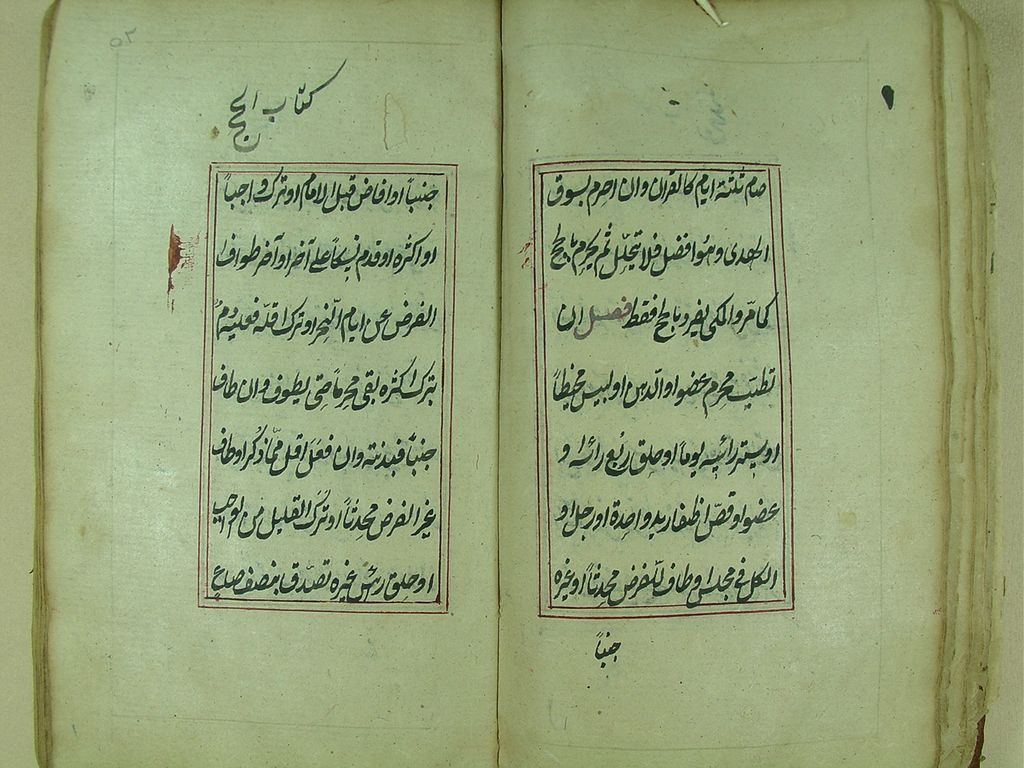 صام ثلثة ايام كالقران وان احرم بسوق
الهدى وهو افضل فلا يتحلل ثم يحرم بالحج
كما مر والمكى يفرد بالحج فقط فصل ان
تطيب محرم عضوا او ادهن او لبس مخيطاً
او ستر رائسه يوماً او حلق ربع رائسه او
عضوا او قص اظفار يد واحدة او رجل او
الكل فى مجلس او طاف للفرض محدثاً او غيره
جنباً
٥٢
كتاب الحج
جنباً او افاض قبل الامام او ترك واجباً
او اكثره او قدم نسكاً على آخر او آخر طواف
الفرض عن ايام النّحر او ترك اقلّه فعليه دمٌ
بترك اكثره بقى محرماً حتى يطوف وان طاف
جنباً فبدنته وان فعل اقل ممّا ذُكر او طاف
غير الفرض محدثاً او ترك القليل من الواجب
او حلق رئس غيره تصدّق بنصف صاع